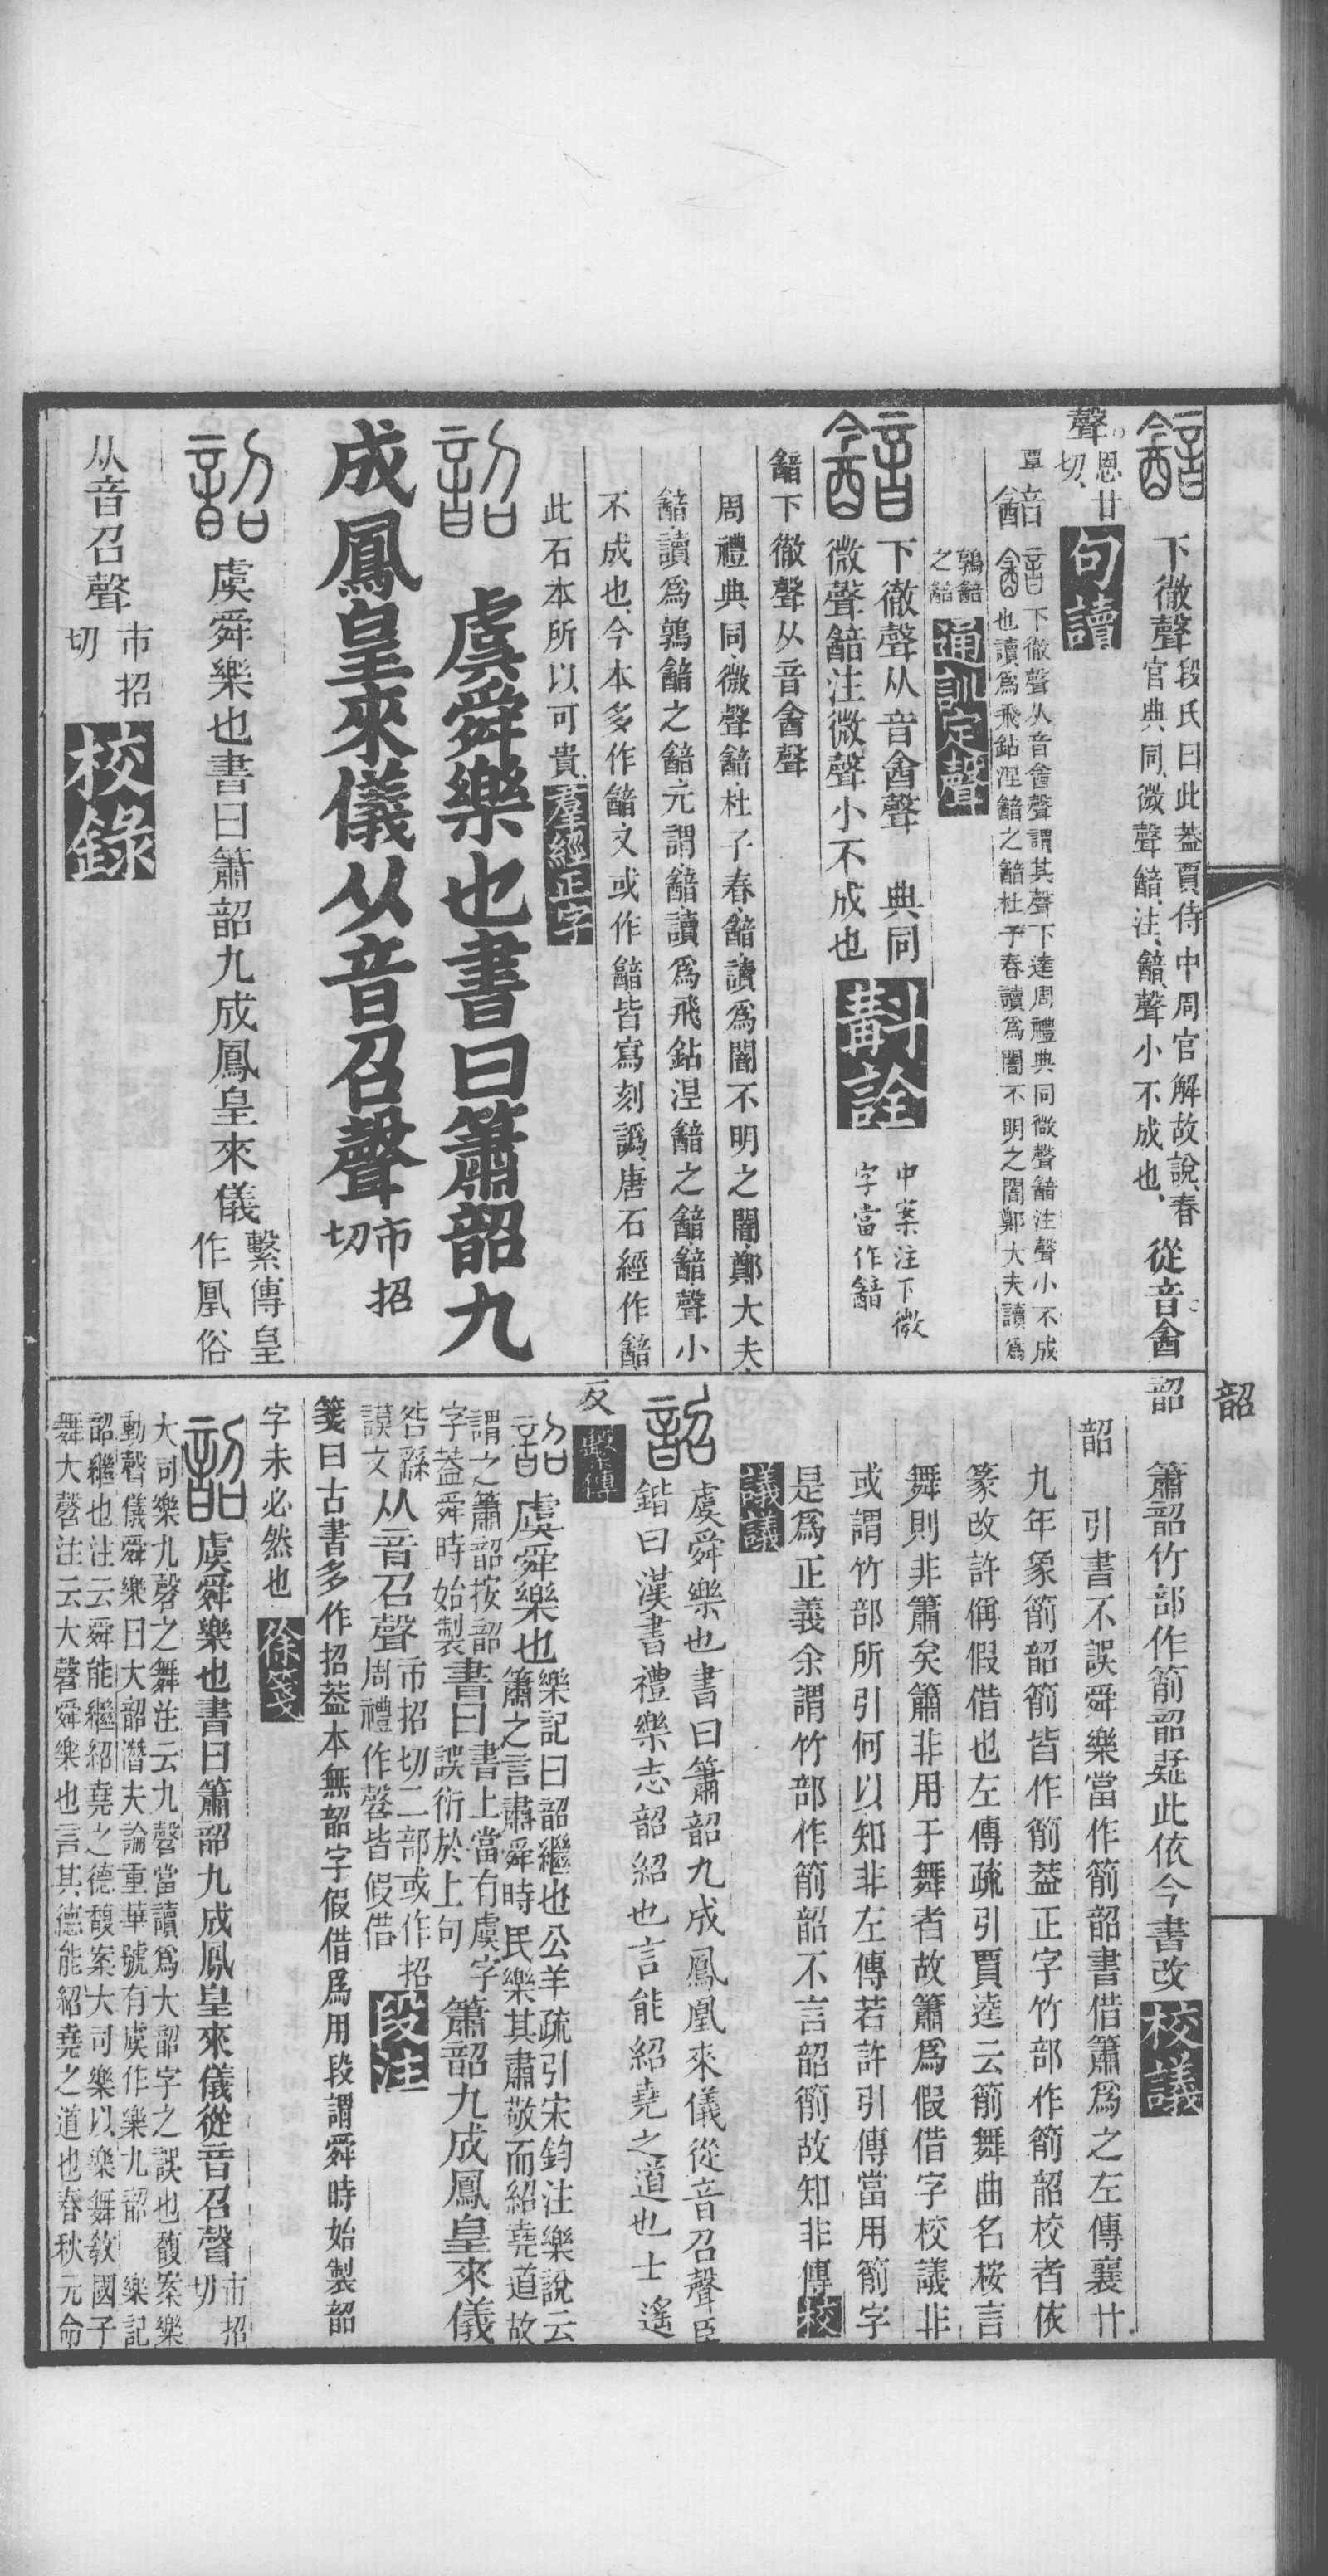 韽 下徹聲段氏曰此蓋賈侍中周官解故說春官典同微聲韽注韽聲小不成也從音酓
聲恩甘切句讀
覃韽韽下徹聲从音酓聲謂其聲下達周禮典同微聲韽注聲小不成也讀爲飛鉆涅韽之韽杜子春讀爲闇不明之闇鄭大夫讀爲
鶉韽之韽通訓定聲
韽下徹聲从音酓聲 典同微聲韽注微聲小不成也斠詮中案注下微字當作韽
韽下徹聲从音酓聲
周禮典同微聲韽杜子春韽讀爲闇不明之闇鄭大夫
韽讀爲鶉韽之韽元謂韽讀爲飛鉆涅韽之韽韽聲小
不成也今本多作韽文或作韽皆寫刻譌唐石經作韽
此石本所以可貴羣經正字
韶 虞舜樂也書曰簫韶九
成鳳皇來儀从音召聲市招切
韶虞舜樂也書曰簫韶九成鳳皇來儀繫傳皇作凰俗
从音召聲市招切校錄
韶
韶 簫韶竹部作箾韶疑此依今書改校議
韶 引書不誤舜樂當作箾韶書借簫爲之左傳襄廿
九年象箾韶箾皆作箾蓋正字竹部作箾韶校者依
篆改許偁假借也左傳疏引賈逵云箾舞曲名桉言
舞則非簫矣簫非用于舞者故簫爲假借字校議非
或謂竹部所引何以知非左傳若許引傳當用箾字
是爲正義余謂竹部作箾韶不言韶箾故知非傳校
議議
韶虞舜樂也書曰簫韶九成鳳凰來儀從音召聲臣
鍇曰漢書禮樂志韶紹也言能紹堯之道也士遙
反繫傳
韶虞舜樂也樂記曰韶繼也公羊疏引宋鈞注樂說云簫之言肅舜時民樂其肅敬而紹堯道故
謂之簫韶按韶字蓋舜時始製書曰書上當有虞字誤衍於上句簫韶九成鳳皇來儀
咎繇謨文从音召聲市招切二部或作招周禮作磬皆假借段注
箋曰古書多作招蓋本無韶字假借爲用段謂舜時始製韶
字未必然也徐箋
韶虞舜樂也書曰簫韶九成鳳皇來儀從音召聲市招切
大司樂九磬之舞注云九磬當讀爲大韶字之誤也馥案樂
動聲儀舜樂曰大韶潛夫論重華號有虞作樂九韶 樂記
韶繼也注云舜能繼紹堯之德馥案大司樂以樂舞敎國子
舞大磬注云大磬舜樂也言其德能紹堯之道也春秋元命